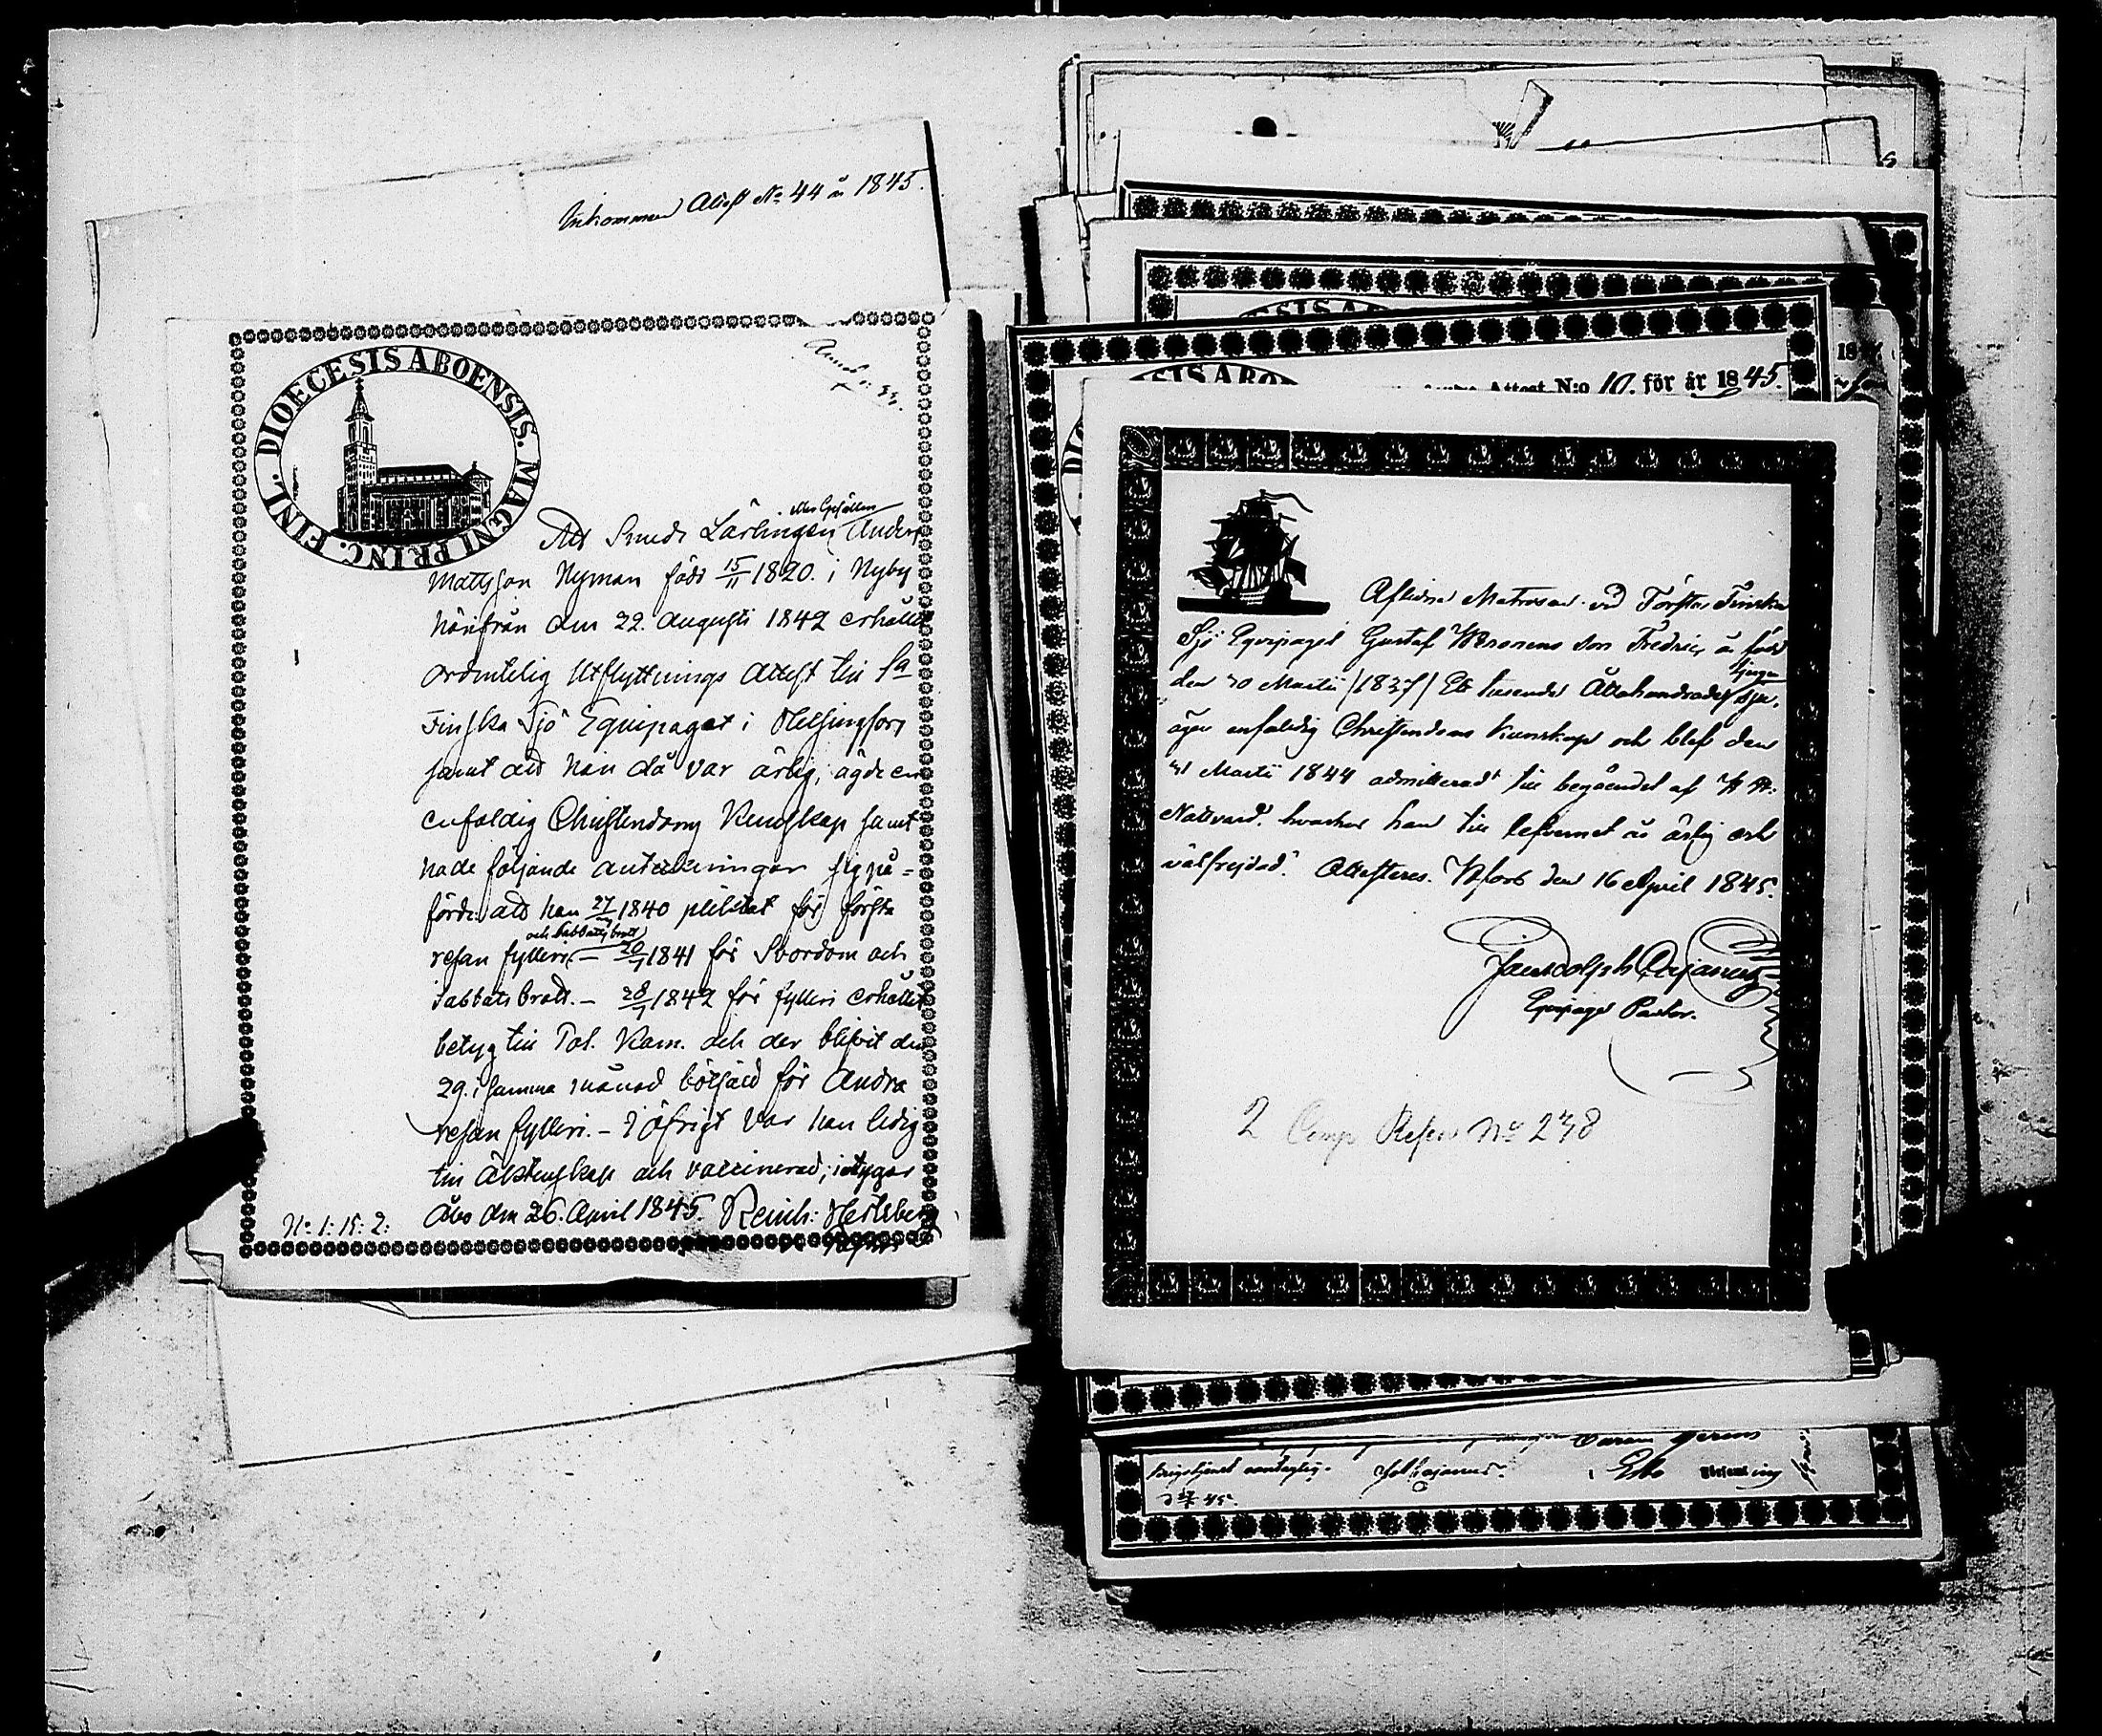 Inkommen Attest No 44 år 1845.
DIOECESIS ABOENSIS. MAGNI PRINC. FINL.
Att Smeds Lärlingen Anders
eller Gesällen
Mattsson Nyman född 15/11 1820. i Nyby
härifrån den 22. Augusti 1842 erhållit
ordentelig Utflyttnings Attest till 1a
Finska Sjö Equipaget i Helsingfors
samt att han då var ärlig, ägde en
enfaldig Christendoms Kunskap samt
hade följande anteckningar sig på=
förde att han 27/ 1840 pliktat för första
resan fylleri och Sabbats brott
— 20/1 1841 för Svordom och
Sabbats brott. — 28/1 1842 för fylleri erhållit
betyg till Pol. Kam. och der blifvit den
29. i samma månad bötfäld för Andra
resan fylleri. — I öfrigt var han ledig
till Äktenskap och vaccinerad; intygar
Åbo den 26. April 1845. Reinh:
No 1: 15: 2:
ESIS A
Attest N:o 10. för år 1845.
18
Aflidne Matrosen vid Första Finska
Sjö Equipaget Gustaf son Fredric, är född
den 30 Martii /1827/ Ett tusende Åttahundrade tjugu
sju,
äger enfaldig Christendoms kunskap och blef den
31 Martii 1844 admitterad till begåendet af H. H.
Nattvard. hvarhos han till lefvernet är ärlig och
välfrejdad. Attesteras. H:fors den 16 April 1845.
Cajanus
Equipage Pastor.
2 Comp Refers No 238
Cajanus.
Esbo